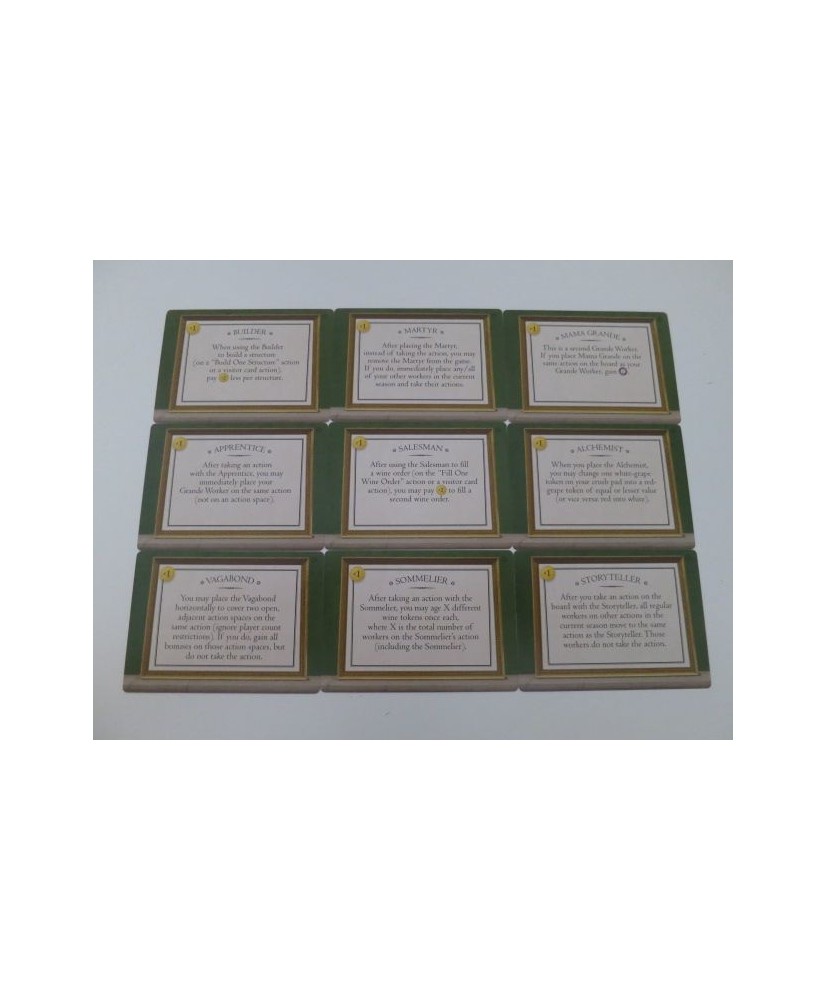 BUILDER
When using the Builder
to build a structure
(on a "Build One Structure" action
or a visitor card action),
pay 1 less per structure.
MARTYR
After placing the Martyr,
instead of taking the action, you may
remove the Martyr from the game.
If you do, immediately place any/all
of your other workers in the current
season and take their actions.
MAMA GRANDE
This is a second Grande Worker.
If you place Mama Grande on the
same action on the board as your
Grande Worker, gain
APPRENTICE
After taking an action
with the Apprentice, you may
immediately place your
Grande Worker on the same action
(not on an action space).
SALESMAN
After using the Salesman to fill
a wine order (on the "Fill One
Wine Order" action or a visitor card
action), you may pay to fill a
second wine order.
ALCHEMIST
When you place the Alchemist,
you may change one white-grape
token on your crush pad into a red-
grape token of equal or lesser value
(or vice versa: red into white).
VAGABOND
You may place the Vagabond
horizontally to cover two open,
adjacent action spaces on the
same action (ignore player count
restrictions). If you do, gain all
bonuses on those action spaces, but
do not take the action.
SOMMELIER
After taking an action with the
Sommelier, you may age X different
wine tokens once each,
where X is the total number of
workers on the Sommelier's action
(including the Sommelier).
STORYTELLER
After you take an action on the
board with the Storyteller, all regular
workers on other actions in the
current season move to the same
action as the Storyteller. Those
workers do not take the action.